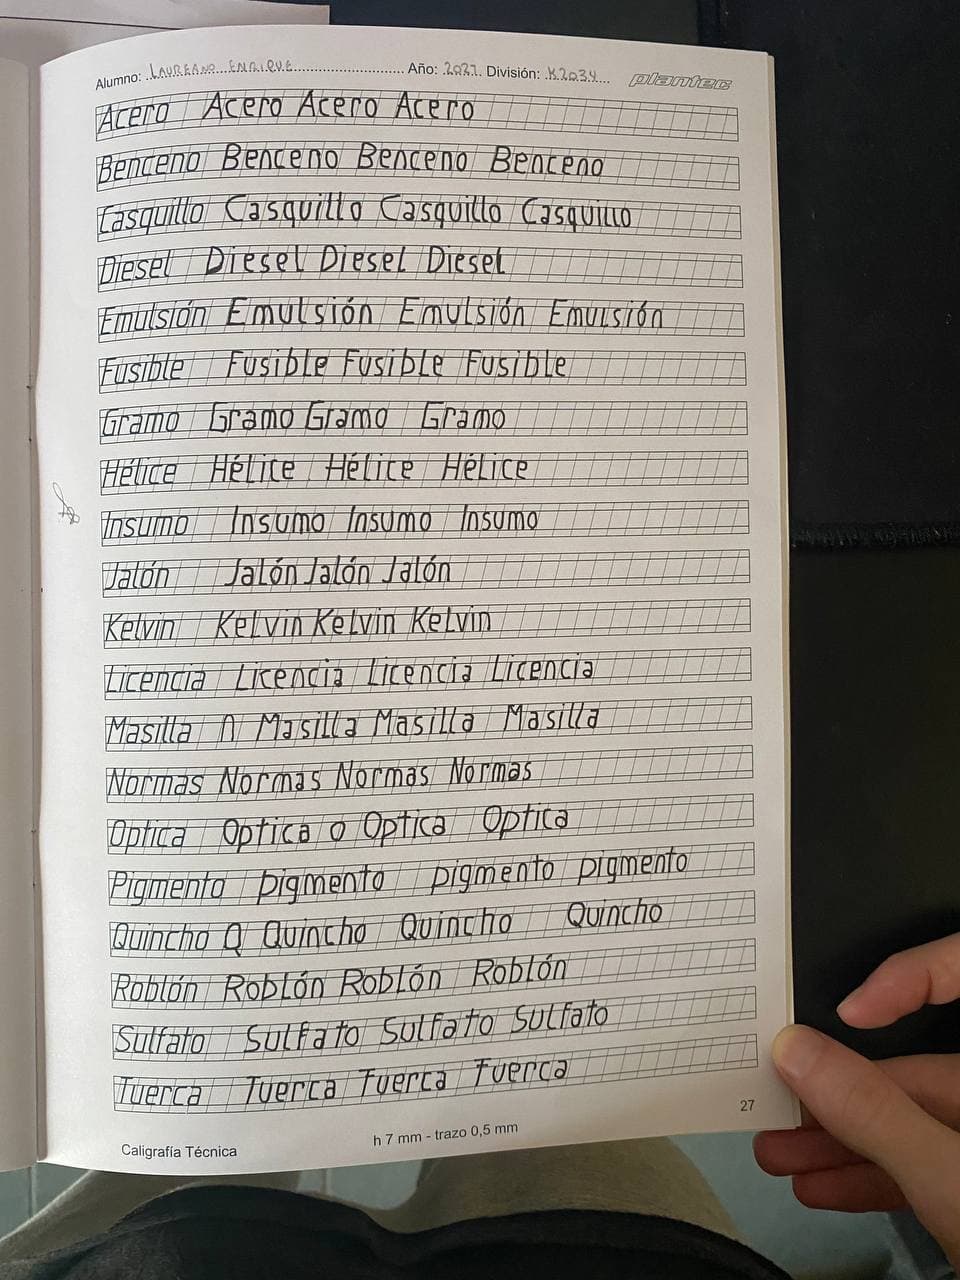 Alumno: LAUREANO ENRIQUE Año: 2021 División: K2034 plantec
Acero Acero Acero Acero
Benceno Benceno Benceno Benceno
Casquillo Casquillo Casquillo Casquillo
Diesel Diesel Diesel Diesel
Emulsión Emulsión Emulsión Emulsión
Fusible Fusible Fusible Fusible
Gramo Gramo Gramo Gramo
Hélice Hélice Hélice Hélice
Insumo Insumo Insumo Insumo
Jalón Jalón Jalón Jalón
Kelvin Kelvin Kelvin Kelvin
Licencia Licencia Licencia Licencia
Masilla n Masilla Masilla Masilla
Normas Normas Normas Normas
Optica Optica o Optica Optica
Pigmento pigmento pigmento pigmento
Quincho Q Quincho Quincho Quincho
Roblón Roblón Roblón Roblón
Sulfato Sulfato Sulfato Sulfato
Tuerca Tuerca Tuerca Tuerca
27
Caligrafía Técnica h 7 mm - trazo 0,5 mm